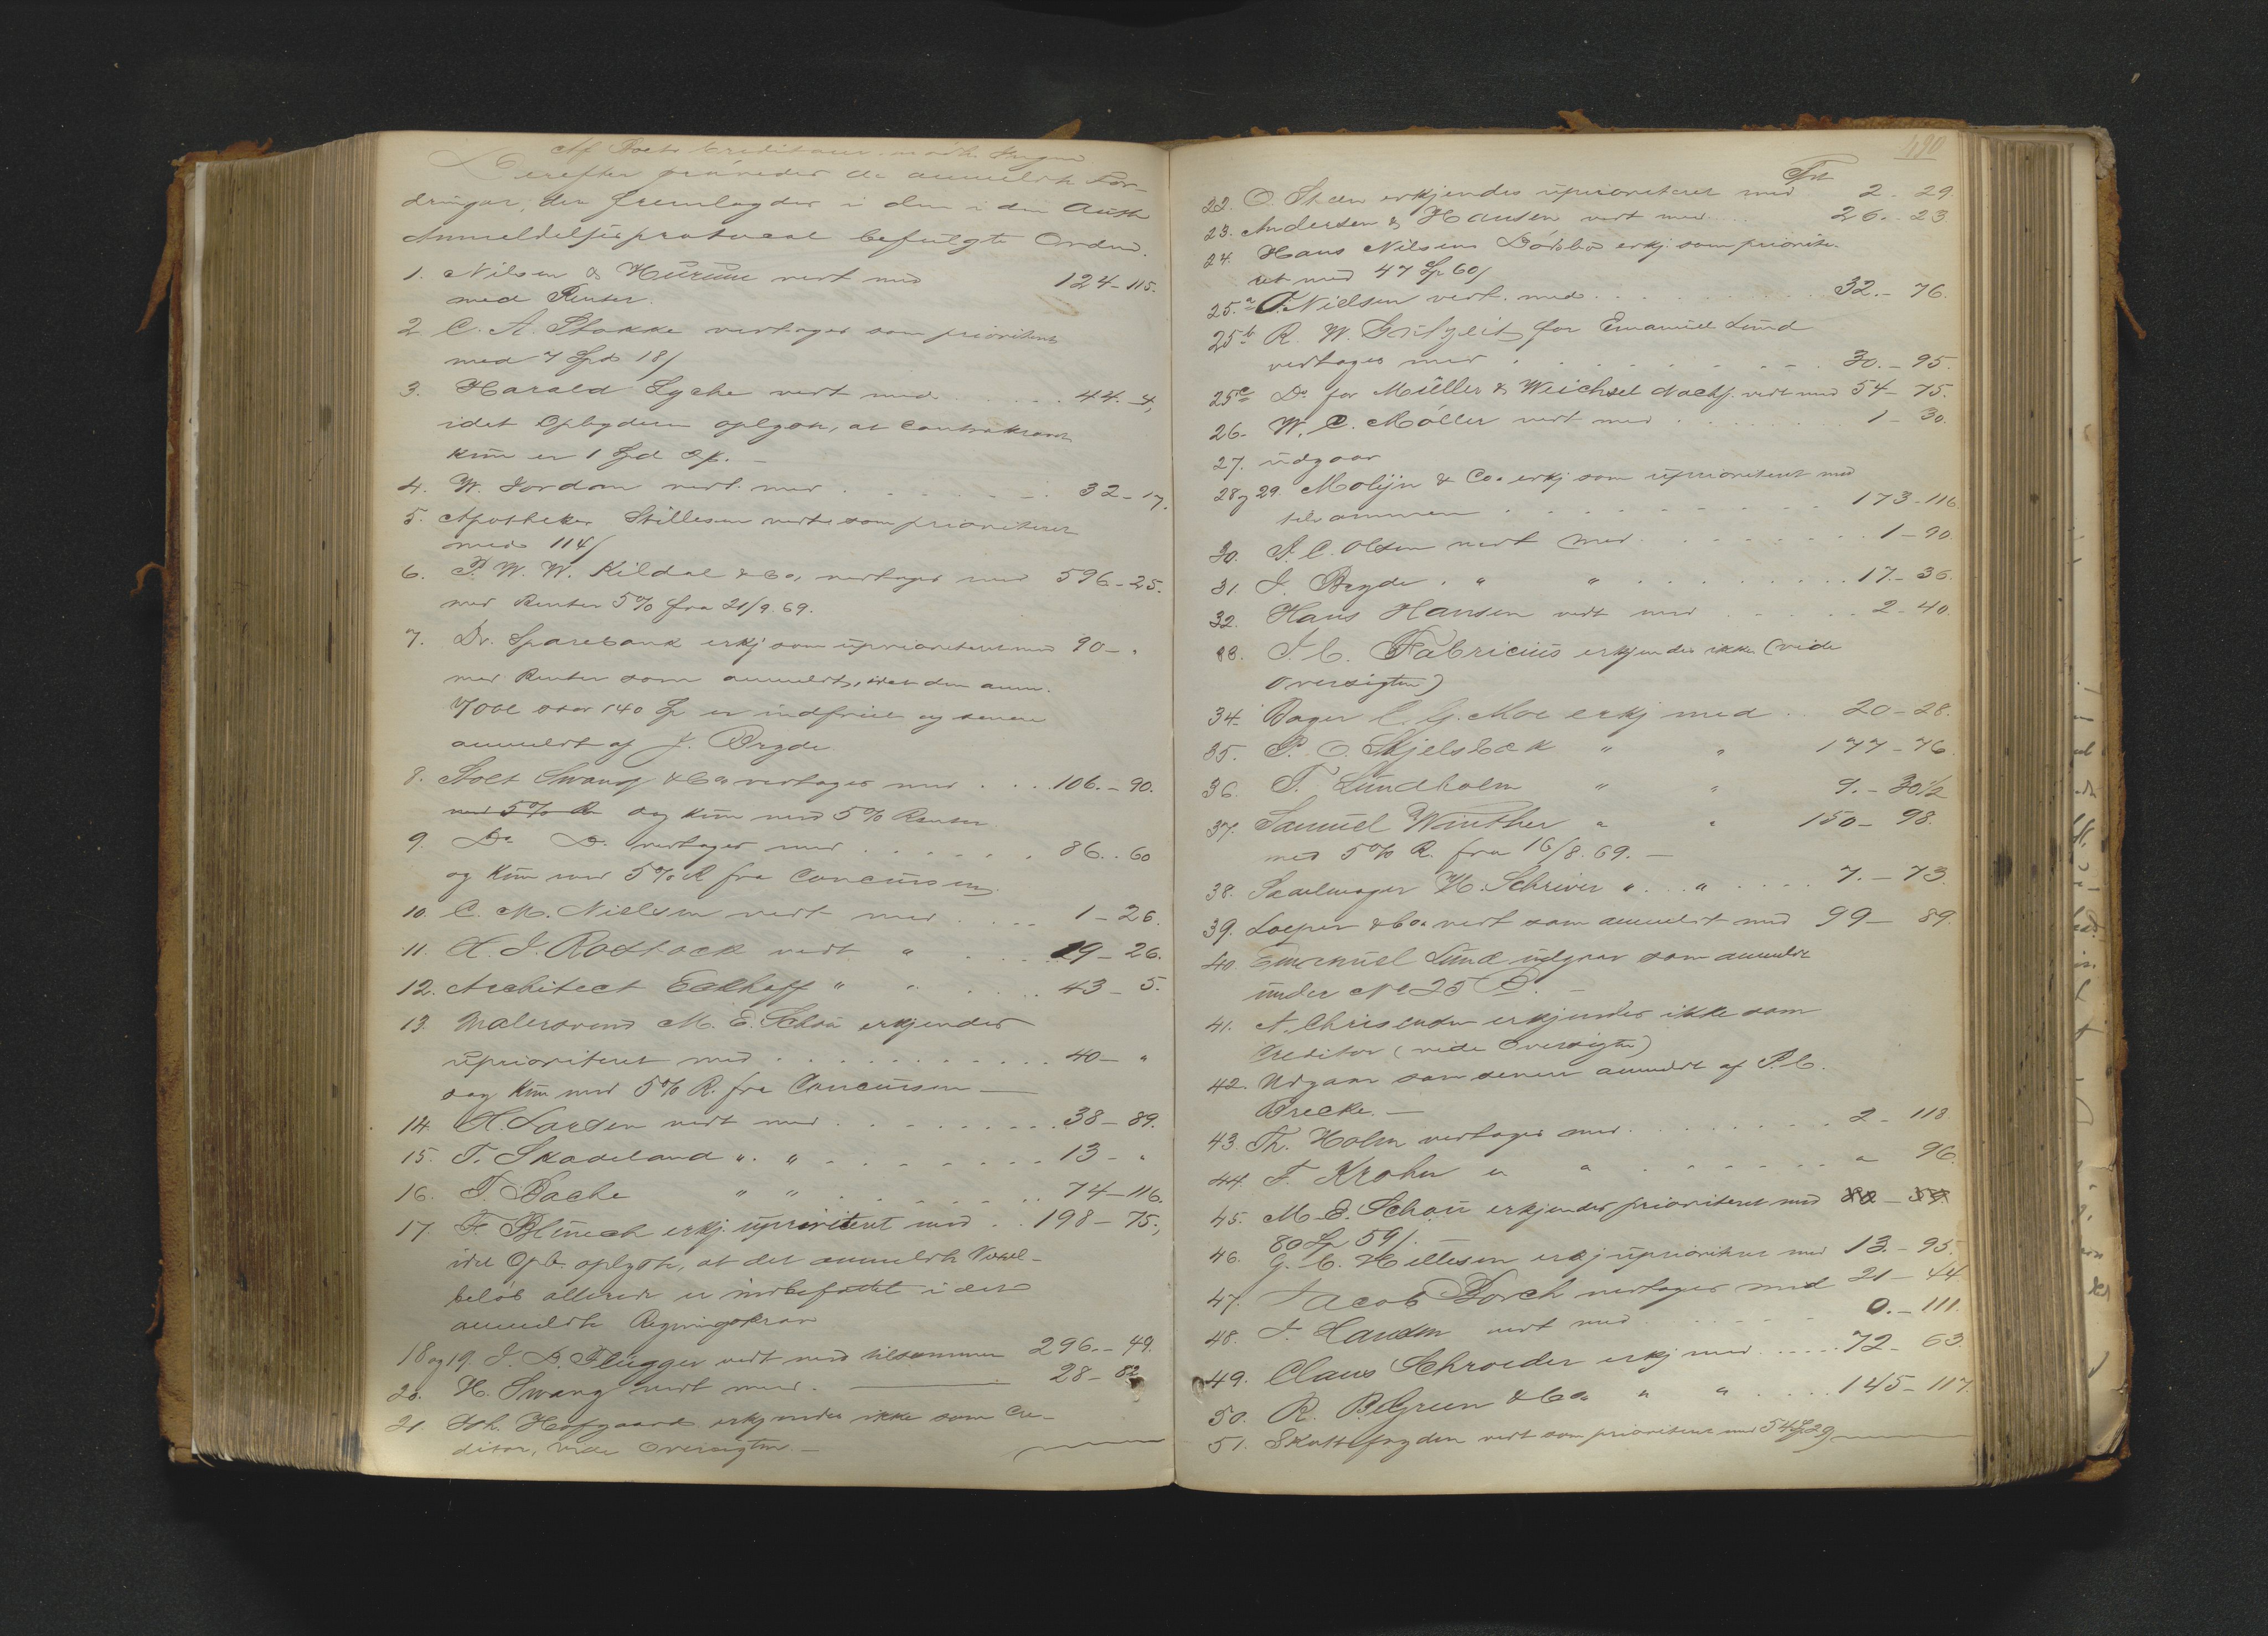 Af Boets Creditorer mødte Ingen.
Derefter prøvedes de anmeldte For-
dringer, der fremlagdes i den i den auth.
Anmeldelsesprotocol befulgte Orden.
1. Nilsen & Hurum vedt med 124-115.
med Renter.
2. C. A. Stokke vedtages som prioriteret
med 7 Spd 18/
3. Harald Lyche vedt med 44.-4,
idet Opbyderen oplyste, at Contrakten
kun er 1 Spd
4. W. Jordan vedt. med 32-17.
5. Apotheker Stillesen vedt. som prioriteret
med 114/
6. P. W. W. Kildal & Co, vedtages med 596-25.
med Renter 5% fra 21/9.69.
7. Dr. Sparebank erkj som uprioriteret med 90-"
med Renter som anmeldt, idet den anm.
Vexel stor 140 Sp er indfriet og senere
anmeldt af J. Bryde.
8. Stolt Swang & Co vedtages med 106.-90.
med 5% R og kun med 5% Renter
9. Do Do vedtages med 86..60
og kun med 5% R fra Concursen.
10. C. M. Nielsen vedt med 1-26.
11. H. J. Rostock vedt " 19-26.
12. Architect Eckhoff " " 43-5.
13. Malersvend M. E. Schou erkjendes
uprioriteret med 40-"
og kun med 5% R. fra Concursen
14. H. Larsen vedt med 38-89.
15. T. Skadeland " " 13-"
16. T. Bache " " 74-116.
17. F. Blunck erkj. uprioriteret med 198-75.,
idet Opb. oplyste, at det anmeldte Vexel-
beløb allerede er indbefattet i det
anmeldte Regningskrav
18 og 19. J. D. Flügger vedt med tilsammen 296.-49.
20. H. Swang vedt med. 28-82
21. Joh. Hofgaard erkjendes ikke som Cre-
ditor, vide Oversigten.-
490
22. O. Steen erkjendes uprioriteret med 2-29.
23. Andersen & Hansen vedt med 26..23
24. Hans Nilsens Dødsbo erkj. som priorite-
ret med 47 Sp 60/
25.a Nielsen vedt. med 32.-76.
25b R. W. Gutzeit for Emanuel Lund
vedtages med 30.-95.
25c Do for Müller & Weichsel Nachf. vedt med 54-75.
26. W. C. Møller vedt med 1-30.
27. udgaar
28 og 29. Molijn & Co. erkj som uprioriteret med
tilsammen 173-116
30. A. C. Olsen vedt med 1-90
31. J. Bryde " " 17.-36.
32. Hans Hansen vedt med 2-40.
33. J. C. Fabricius erkjendes ikke (vide
Oversigten)
34. Bager C. G. Moe erkj med 20-28.
35. P. O. Skjelsbæk " " 177-76
36. T. Lundholm " " 9.-30½
37. Samuel Winther " " 150-98.
med 5% R. fra 16/8.69.-
38. Sadelmager H. Schriver " " 7.-73.
39. Loeper & Co. vedt som anmeldt med 99-89.
40. Emanuel Lund udgaar som anmeldt
under No 25 B.-
41. A. Christensen erkjendes ikke som
Creditor (vide Oversigten)
42. Udgaar som senere anmeldt af P. C.
Brecke.-
43. Th. Holm vedtages med 2-118
44. F. Krohn " " " 96.
45. M. E. Schou erkjendes prioriteret med 80-59.
80 Sp 59/.
46. G. C. Hillesen erkj uprioriteret med 13.-95.
47. Jacob Borch vedtages med 21-44
48. J. Hansen vedt med 0.-111.
49. Claus Schroeder erkj med 72-63.
50. R. Bogreen & Co " " 145-117.
51. Skattefogden vedt som prioriteret med 54 Sp 29